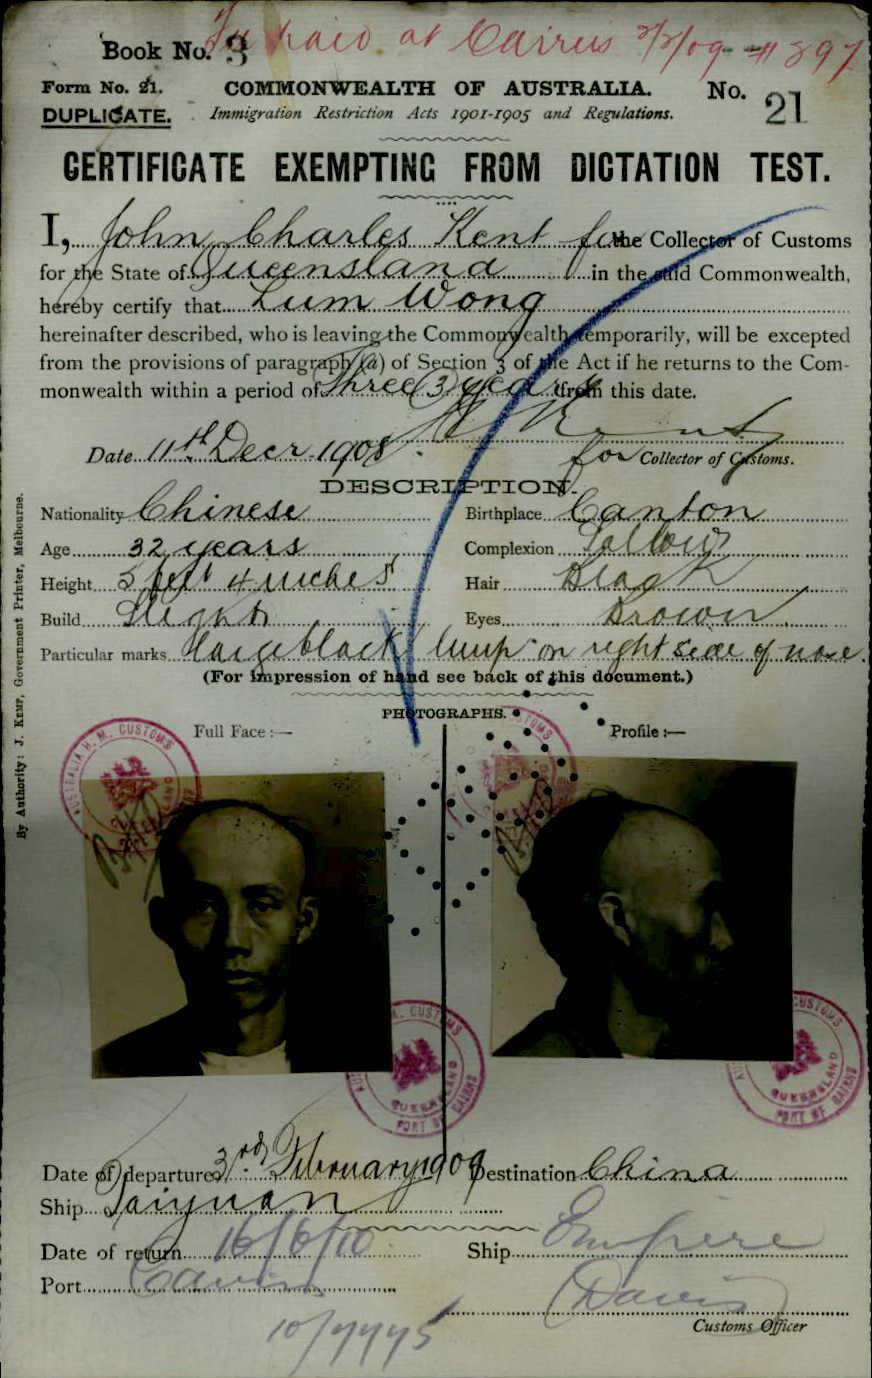 at Cairns 3/2/09 # 297
Book No. 3
Form No. 21. COMMONWEALTH OF AUSTRALIA. No. 21
DUPLICATE. Immigration Restriction Acts 1901-1905 and Regulations.
CERTIFICATE EXEMPTING FROM DICTATION TEST.
I, John Charles Kent for the Collector of Customs
for the State of Queensland in the said Commonwealth,
hereby certify that Lum Wong
hereinafter described, who is leaving the Commonwealth temporarily, will be excepted
from the provisions of paragraph (a) of Section 3 of the Act if he returns to the Com-
monwealth within a period of Three (3) years from this date.
Kent
Date 11th Decr. 1908. for Collector of Customs.
DESCRIPTION.
Nationality Chinese Birthplace Canton
Age 32 years Complexion Sallow
Height 5 feet 4 inches Hair Black
Build Slight Eyes Brown
Particular marks Large black lump on right side of nose.
(For impression of hand see back of this document.)
PHOTOGRAPHS.
Full Face :— Profile :—
By Authority: J. KEMP, Government Printer, Melbourne.
AUSTRALIA H. M. CUSTOMS
CUSTOMS
H. M. CUSTOMS QUEENSLAND PORT OF CAIRNS
CUSTOMS QUEENSLAND PORT OF CAIRNS
Date of departure 3rd February 1909 Destination China
Ship Taiyuan
Date of return 16/6/10 Ship Empire
Port Cairns Davis
Customs Officer
10/7775